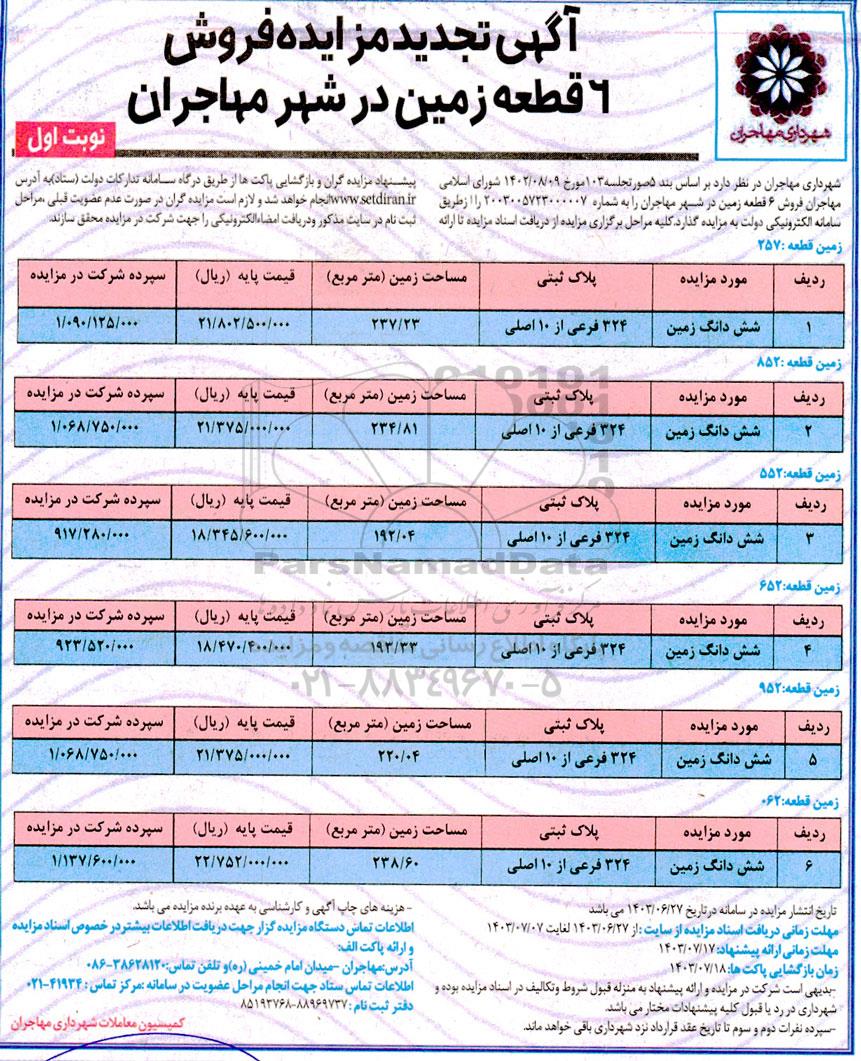 آگهی تجدید مزایده فروش
۶ قطعه زمین در شهر مهاجران
شهرداری مهاجران
نوبت اول
شهرداری مهاجران در نظر دارد بر اساس بند ۵صورتجلسه۱۰۳مورخ ۱۴۰۲/۰۸/۰۹ شورای اسلامی
مهاجران فروش ۶ قطعه زمین در شهر مهاجران را به شماره ۲۰۰۳۰۰۵۷۲۳۰۰۰۰۰۷ را ازطریق
سامانه الکترونیکی دولت به مزایده گذارد.کلیه مراحل برگزاری مزایده از دریافت اسناد مزایده تا ارائه
پیشنهاد مزایده گران و بازگشایی پاکت ها از طریق درگاه سامانه تدارکات دولت (ستاد)به آدرس
www.setdiran.irانجام خواهد شد و لازم است مزایده گران در صورت عدم عضویت قبلی ،مراحل
ثبت نام در سایت مذکور ودریافت امضاءالکترونیکی را جهت شرکت در مزایده محقق سازند.
زمین قطعه :۲۵۷
ردیف مورد مزایده پلاک ثبتی مساحت زمین (متر مربع) قیمت پایه (ریال) سپرده شرکت در مزایده
۱ شش دانگ زمین ۳۲۴ فرعی از ۱۰ اصلی ۲۳۷/۲۳ ۲۱/۸۰۲/۵۰۰/۰۰۰ ۱/۰۹۰/۱۲۵/۰۰۰
زمین قطعه :۸۵۲
ردیف مورد مزایده پلاک ثبتی مساحت زمین (متر مربع) قیمت پایه (ریال) سپرده شرکت در مزایده
۲ شش دانگ زمین ۳۲۴ فرعی از ۱۰ اصلی ۲۳۴/۸۱ ۲۱/۳۷۵/۰۰۰/۰۰۰ ۱/۰۶۸/۷۵۰/۰۰۰
زمین قطعه:۵۵۲
ردیف مورد مزایده پلاک ثبتی مساحت زمین (متر مربع) قیمت پایه (ریال) سپرده شرکت در مزایده
۳ شش دانگ زمین ۳۲۴ فرعی از ۱۰ اصلی ۱۹۲/۰۴ ۱۸/۳۴۵/۶۰۰/۰۰۰ ۹۱۷/۲۸۰/۰۰۰
ParsNamadData
زمین قطعه:۶۵۲
ردیف مورد مزایده پلاک ثبتی مساحت زمین (متر مربع) قیمت پایه (ریال) سپرده شرکت در مزایده
۴ شش دانگ زمین ۳۲۴ فرعی از ۱۰ اصلی ۱۹۳/۳۳ ۱۸/۴۷۰/۴۰۰/۰۰۰ ۹۲۳/۵۲۰/۰۰۰
۰۲۱-۸۸۳۴۹۶۷۰-۵
زمین قطعه:۹۵۲
ردیف مورد مزایده پلاک ثبتی مساحت زمین (متر مربع) قیمت پایه (ریال) سپرده شرکت در مزایده
۵ شش دانگ زمین ۳۲۴ فرعی از ۱۰ اصلی ۲۲۰/۰۴ ۲۱/۳۷۵/۰۰۰/۰۰۰ ۱/۰۶۸/۷۵۰/۰۰۰
زمین قطعه:۰۶۲
ردیف مورد مزایده پلاک ثبتی مساحت زمین (متر مربع) قیمت پایه (ریال) سپرده شرکت در مزایده
۶ شش دانگ زمین ۳۲۴ فرعی از ۱۰ اصلی ۲۳۸/۶۰ ۲۲/۷۵۲/۰۰۰/۰۰۰ ۱/۱۳۷/۶۰۰/۰۰۰
تاریخ انتشار مزایده در سامانه درتاریخ ۱۴۰۳/۰۶/۲۷ می باشد
مهلت زمانی دریافت اسناد مزایده از سایت :از ۱۴۰۳/۰۶/۲۷ لغایت ۱۴۰۳/۰۷/۰۷
مهلت زمانی ارائه پیشنهاد:۱۴۰۳/۰۷/۱۷
زمان بازگشایی پاکت ها: ۱۴۰۳/۰۷/۱۸
-بدیهی است شرکت در مزایده و ارائه پیشنهاد به منزله قبول شروط وتکالیف در اسناد مزایده بوده و
شهرداری در رد یا قبول کلیه پیشنهادات مختار می باشد.
-سپرده نفرات دوم و سوم تا تاریخ عقد قرارداد نزد شهرداری باقی خواهد ماند.
- هزینه های چاپ آگهی و کارشناسی به عهده برنده مزایده می باشد.
اطلاعات تماس دستگاه مزایده گزار جهت دریافت اطلاعات بیشتر در خصوص اسناد مزایده
و ارائه پاکت الف:
آدرس:مهاجران -میدان امام خمینی (ره)و تلفن تماس:۳۸۶۲۸۱۲۰-۰۸۶
اطلاعات تماس ستاد جهت انجام مراحل عضویت در سامانه :مرکز تماس : ۴۱۹۳۴-۰۲۱
دفتر ثبت نام : ۸۸۹۶۹۷۳۷-۸۵۱۹۳۷۶۸
کمیسیون معاملات شهرداری مهاجران